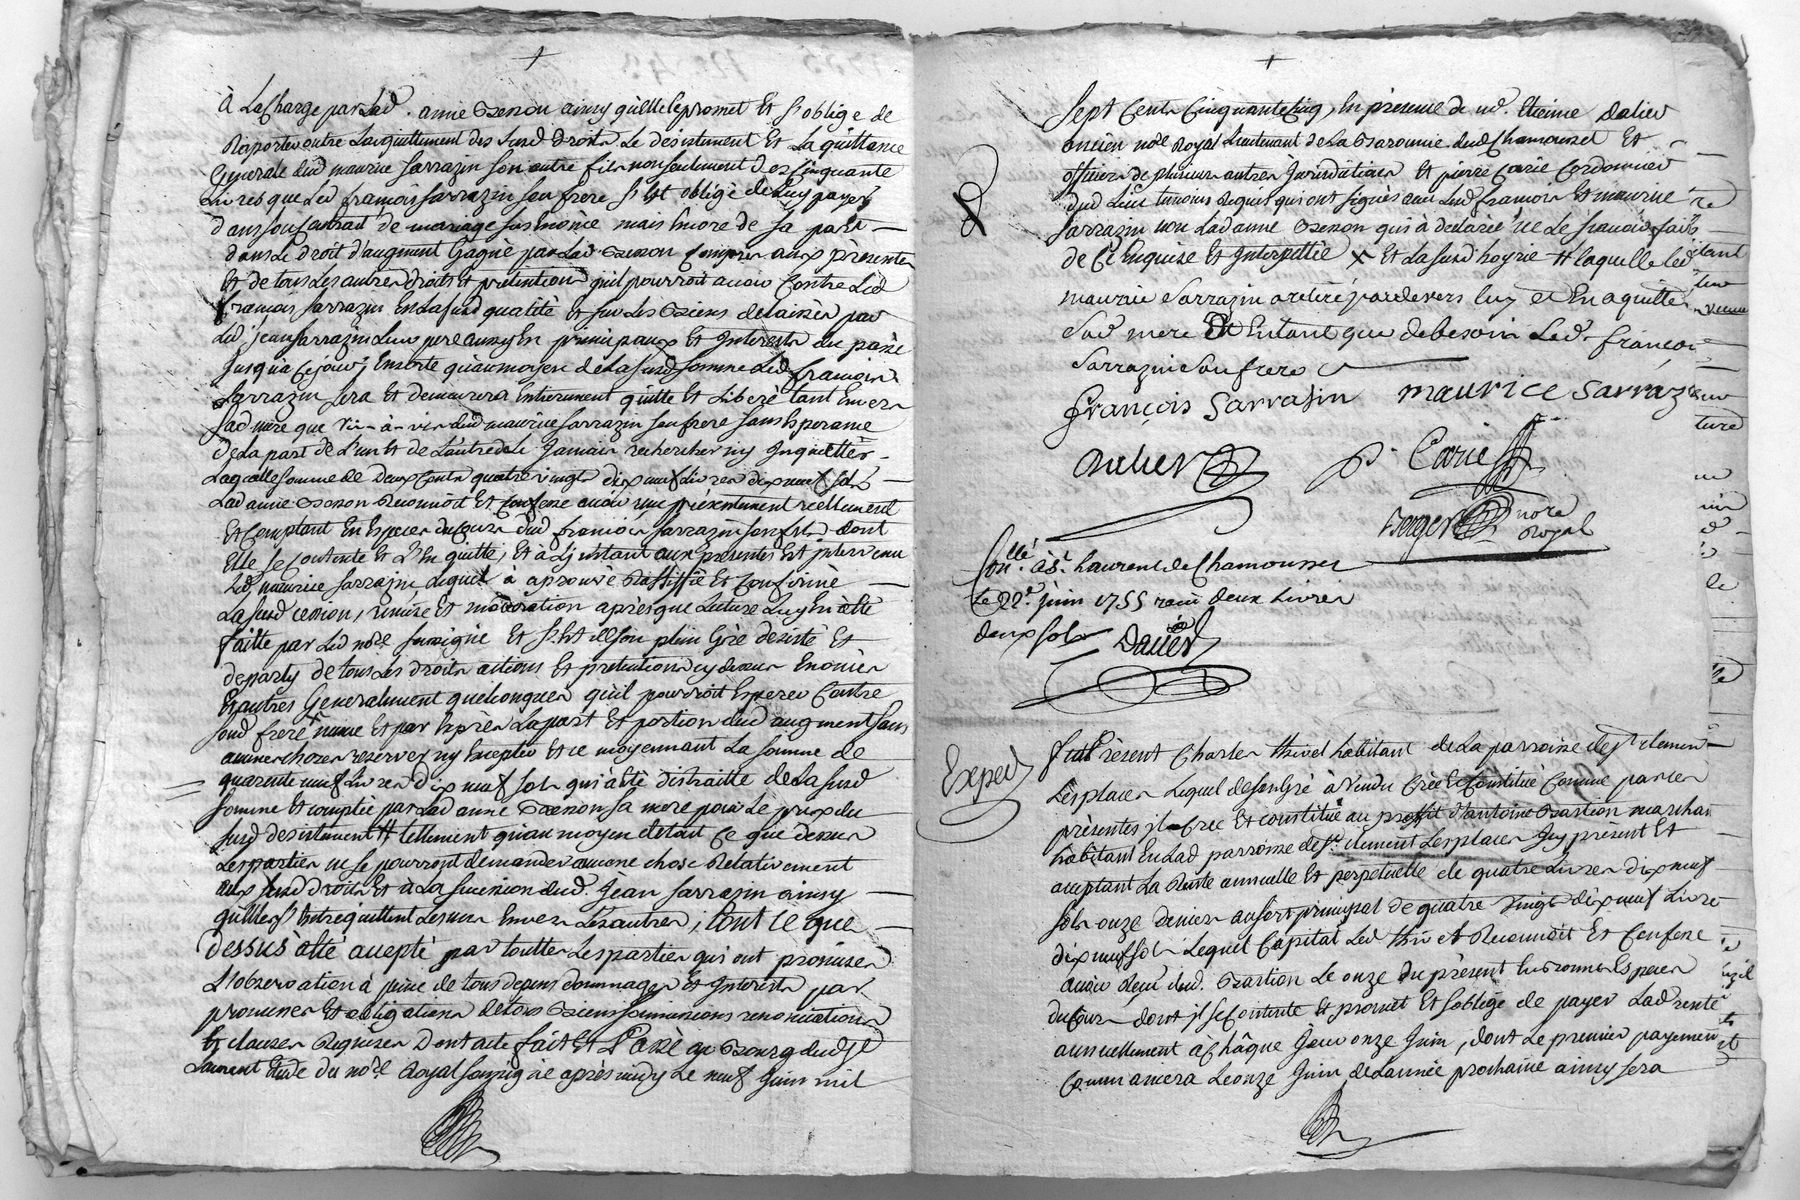 à la Charge par lad. anne Benon ainsy qu'elle le promet et s'oblige de
Raporter outre l'acquittement des susd droits le desistement Et La quittance
Generale dud maurice sarrazin son autre fils non seulement des Cinquante
Livres que led françois sarrazin son frere s'est obligé de luy payer
dans son Contrat de mariage susénoncé mais encore de sa part
dans le droit d'augment Gagné par lad Benon compris aux présentes
et de tous les autres droits et prétentions qu'il pourroit avoir Contre Led
françois sarrazin En lasusd qualité et sur les Biens delaissés par
Led jean sarrazin leur pere aussy en principaux et Interests du passé
Jusqua ce jour, Ensorte qu'au moyen de lasusd somme Led françois
sarrazin sera Et demeurera Entierement quitte Et Liberé tant Envers
sad mere que vis-à-vis dud maurice sarrazin son frere sans Esperance
de la part de l'un Et de l'autre de le Jamais rechercher ny Inquietter
Laquelle somme de Deux Cents quatre vingt dix neuf livres dix neuf sols
Lad anne Benon Reconnoît Et Confesse avoir reçu présentement réellement
Et comptant En Especes du Cours dud françois sarrazin son fils dont
Elle se contente et l'En quitte, Et à L'instant aux présentes Est intervenu
Led maurice sarrazin, Lequel à aprouvé Rattiffié Et Confirmé
Lasusd cession, remise Et modération après que lecture Luy En à été
faitte par Led nore. soussigné Et s'est de son plein Gré désisté Et
departy de tous les droits actions Et pretentions cy dessus Enoncés
Et autres Generalement quelconques qu'il pourroit Esperer Contre
sond frere même Et par Exprès La part et portion dud augment sans
aucunes choses reserver ny Excepter Et ce moyennant La somme de
quarente neuf Livres dix neuf sols qui à été distraitte de la susd
somme Et comptée par Lad anne Benon sa mere pour Le prix du
susd desistement # tellement qu'au moyen de tout ce que dessus
Les parties ne se pourront demander aucune chose Relativement
aux susd droits Et à La succession dud. Jean sarrazin ainsy
qu'elles s'Entrequittent les uns Envers Les autres, tout ce que
Dessus à été accepté par touttes Les parties qui ont promis
L'observation à peine de tous depens dommages Et Interests par
promesses Et obligations de tous Biens soumissions renonciations
Et clauses Requises Dont acte fait Et Passé au Bourg dud St
Laurent Etude du nore. Royal soussigné après midy Le neuf Juin mil
sept Cents Cinquante Cinq, En présence de me. Etienne Dalier
ancien nore Royal Lieutenant de La Baronnie dud Chamousset Et
officier de plusieurs autres Jurisdictions Et pierre Carie Cordonnier
dud Lieu temoins Requis qui ont signés avec Lesd françois Et maurice
sarrazin non Lad anne Benon qui à declaré ne Le sçavoir faire
de ce Enquise Et Interpellée x Et La susd hoyrie # laquelle led
maurice Sarrazin a retiré pardevers luy et En aquitte
Sad mere Et Entant que de besoin Led. françois
Sarrazin son frere
françois Sarrasin maurice Sarrazin
Dalier P. Carie
Berger nore
Royal
Conllé. à St. Laurent de Chamousset
Le 22e. juin 1755 reçu deux Livres
deux sols Dalier
Exped
fut Présent Charles thivel habitant de La parroisse de St. clement
Les places Lequel de son Gré à vendu Créé Et Constitué Comme par ces
présentes jl Cree Et constitue au proffit d'antoine Bastion marchan
habitant En Lad parroisse de St. clement Les places Jcy présent Et
acceptant La Rente annuelle Et perpetuelle de quatre Livres dix neuf
sols onze deniers au sort principal de quatre vingt dix neuf Livres
dix neuf sols Lequel Capital Led thivel Reconnoît Et Confesse
avoir Reçu dud. Bastion Le onze du présent En Bonnes Especes
du Cours dont jl se Contente Et promet Et soblige de payer Lad rente
annuellement à Châque Jour onze Juin, dont Le premier payement
Commancera Le onze Juin de L'année prochaine ainsy sera